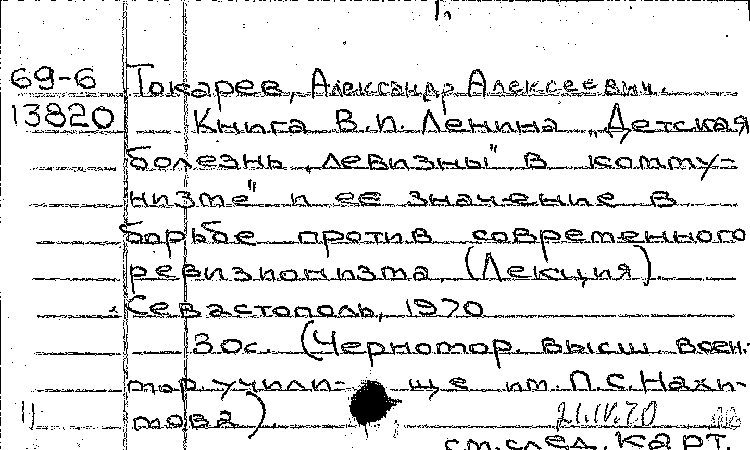 69-6 Токарев, Александр Алексеевич.
13820 Книга В.И. Ленина „Детская
болезнь „левизны" в комму-
низме" и ее значение в
борьбе против современного
ревизионизма. (Лекция).
Севастополь, 1970
30с. (Черномор. высш. воен.-
мор. учили- ще им. П.С. Нахи-
мова).
21.IV.70
см. след. карт.